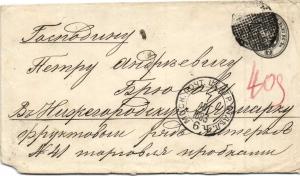 Господину
Петру Андреевичу
Въ Нижегородскую Ярмарку
фруктовый рядъ
№ 41 торговля пробками
409